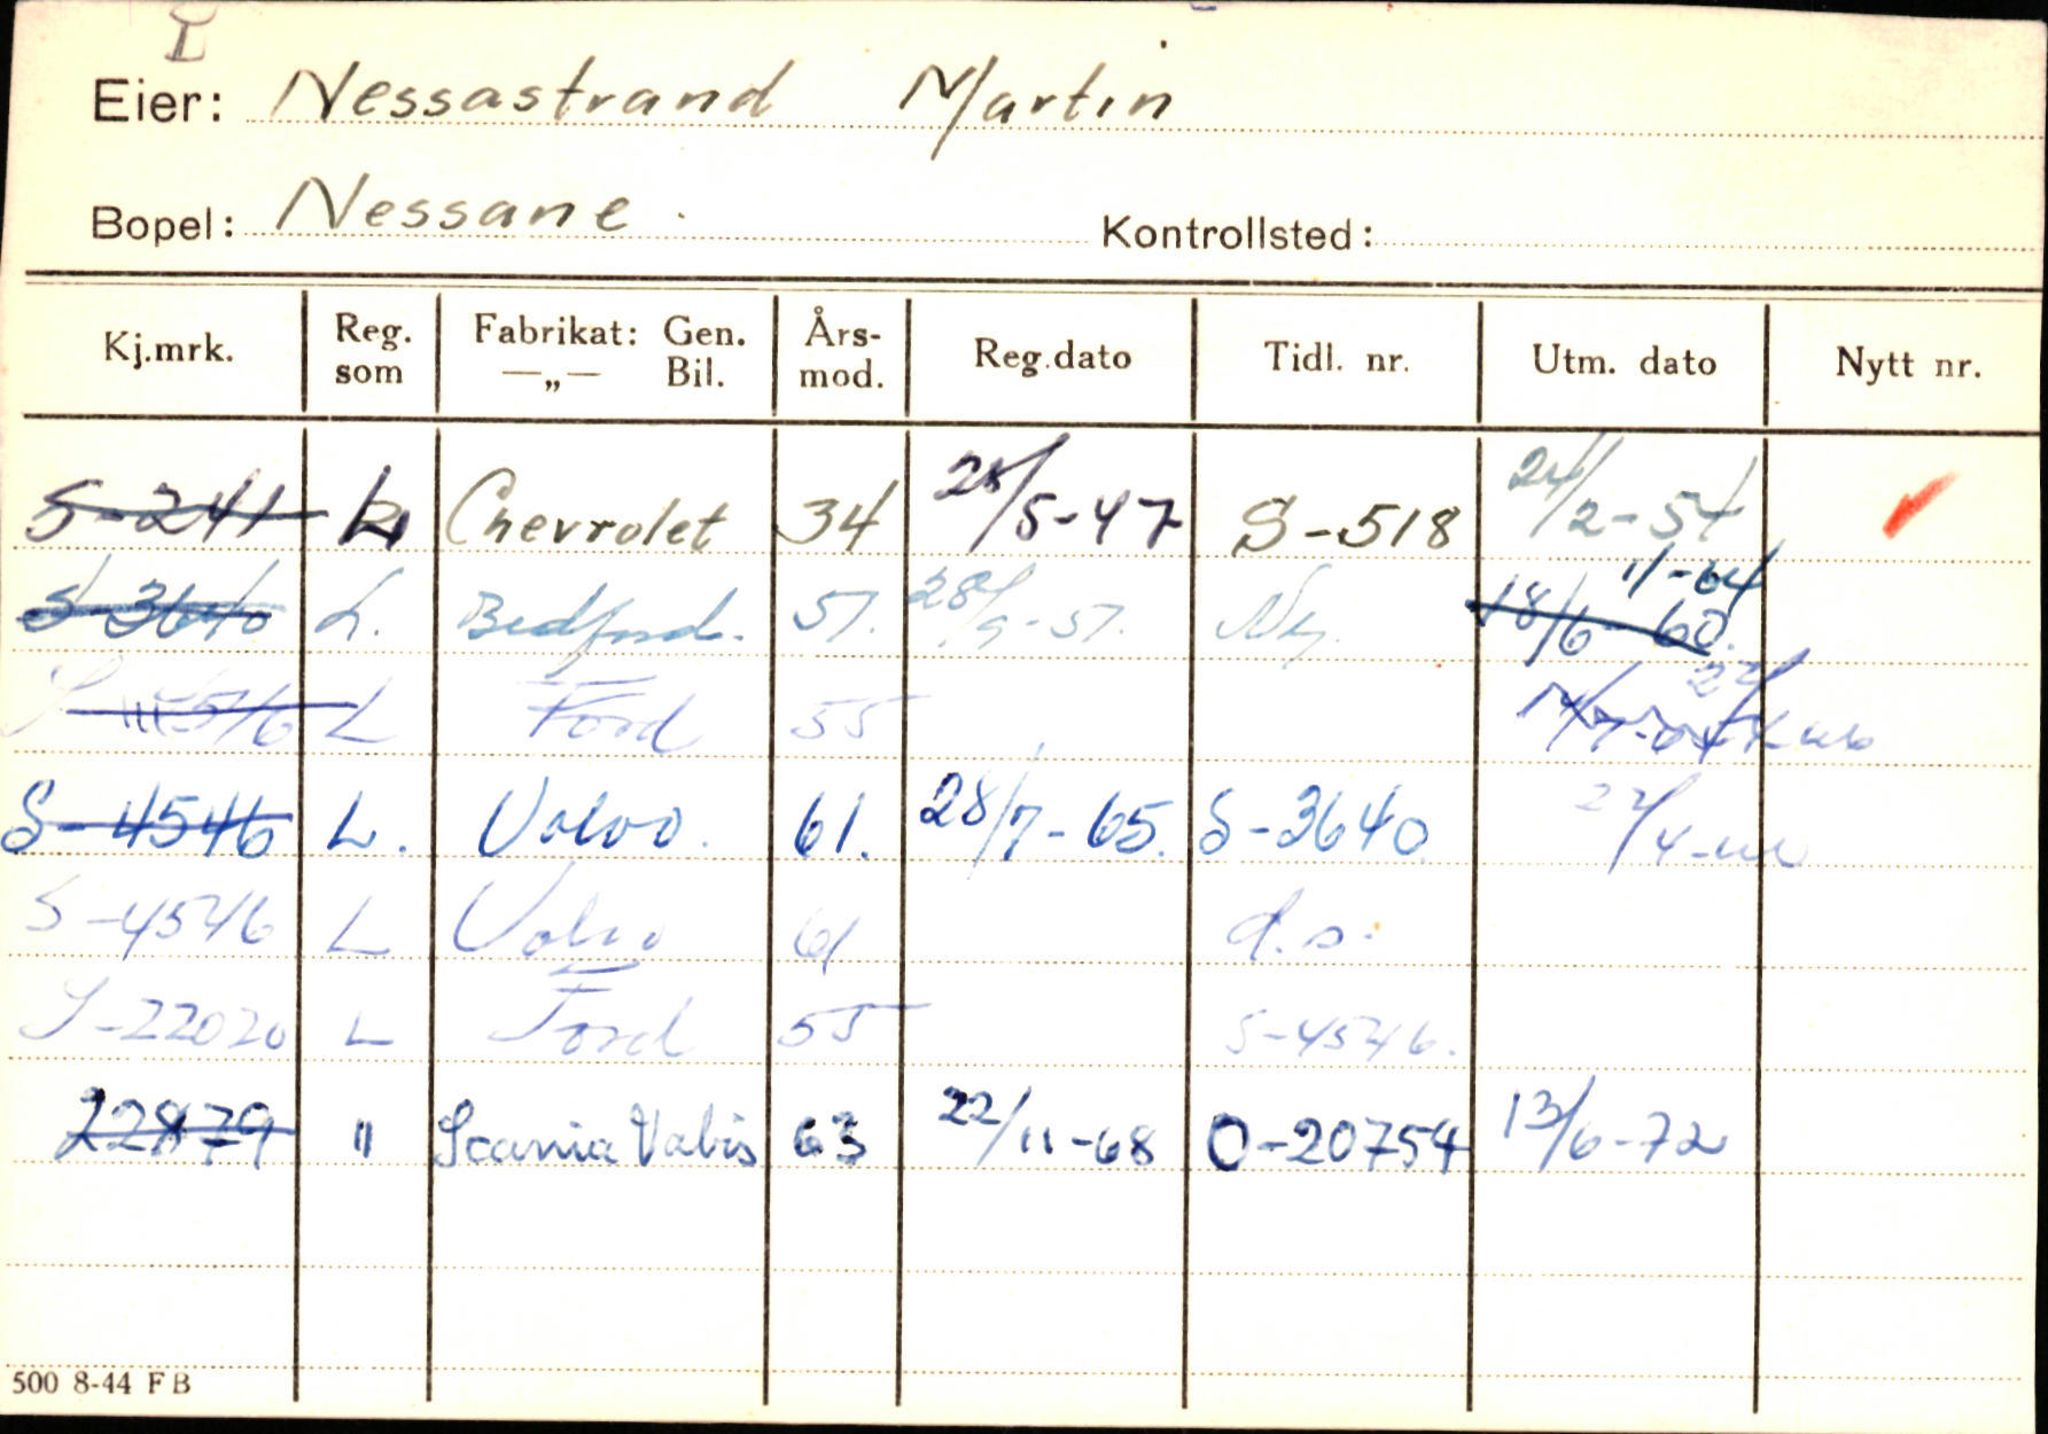 I
Eier: Nessastrand Martin
Bopel: Nessane. Kontrollsted:
Kj.mrk. Reg. som Fabrikat: Gen. —„— Bil. Års- mod. Reg.dato Tidl. nr. Utm. dato Nytt nr.
S-241 L Chevrolet 34 28/5-47 S-518 24/2-54
11-64
S-3640 L. Bedford. 57. 28/9-57. Ny. 18/6-60.
L Ford 55
S-4546 L. Volvo. 61. 28/7-65. S-3640
S-4546 L Volvo 61 d.s.
S-22020 L Ford 55 S-4546.
22879 " Scania Vabis 63 22/11-68 O-20754 13/6-72
500 8-44 FB